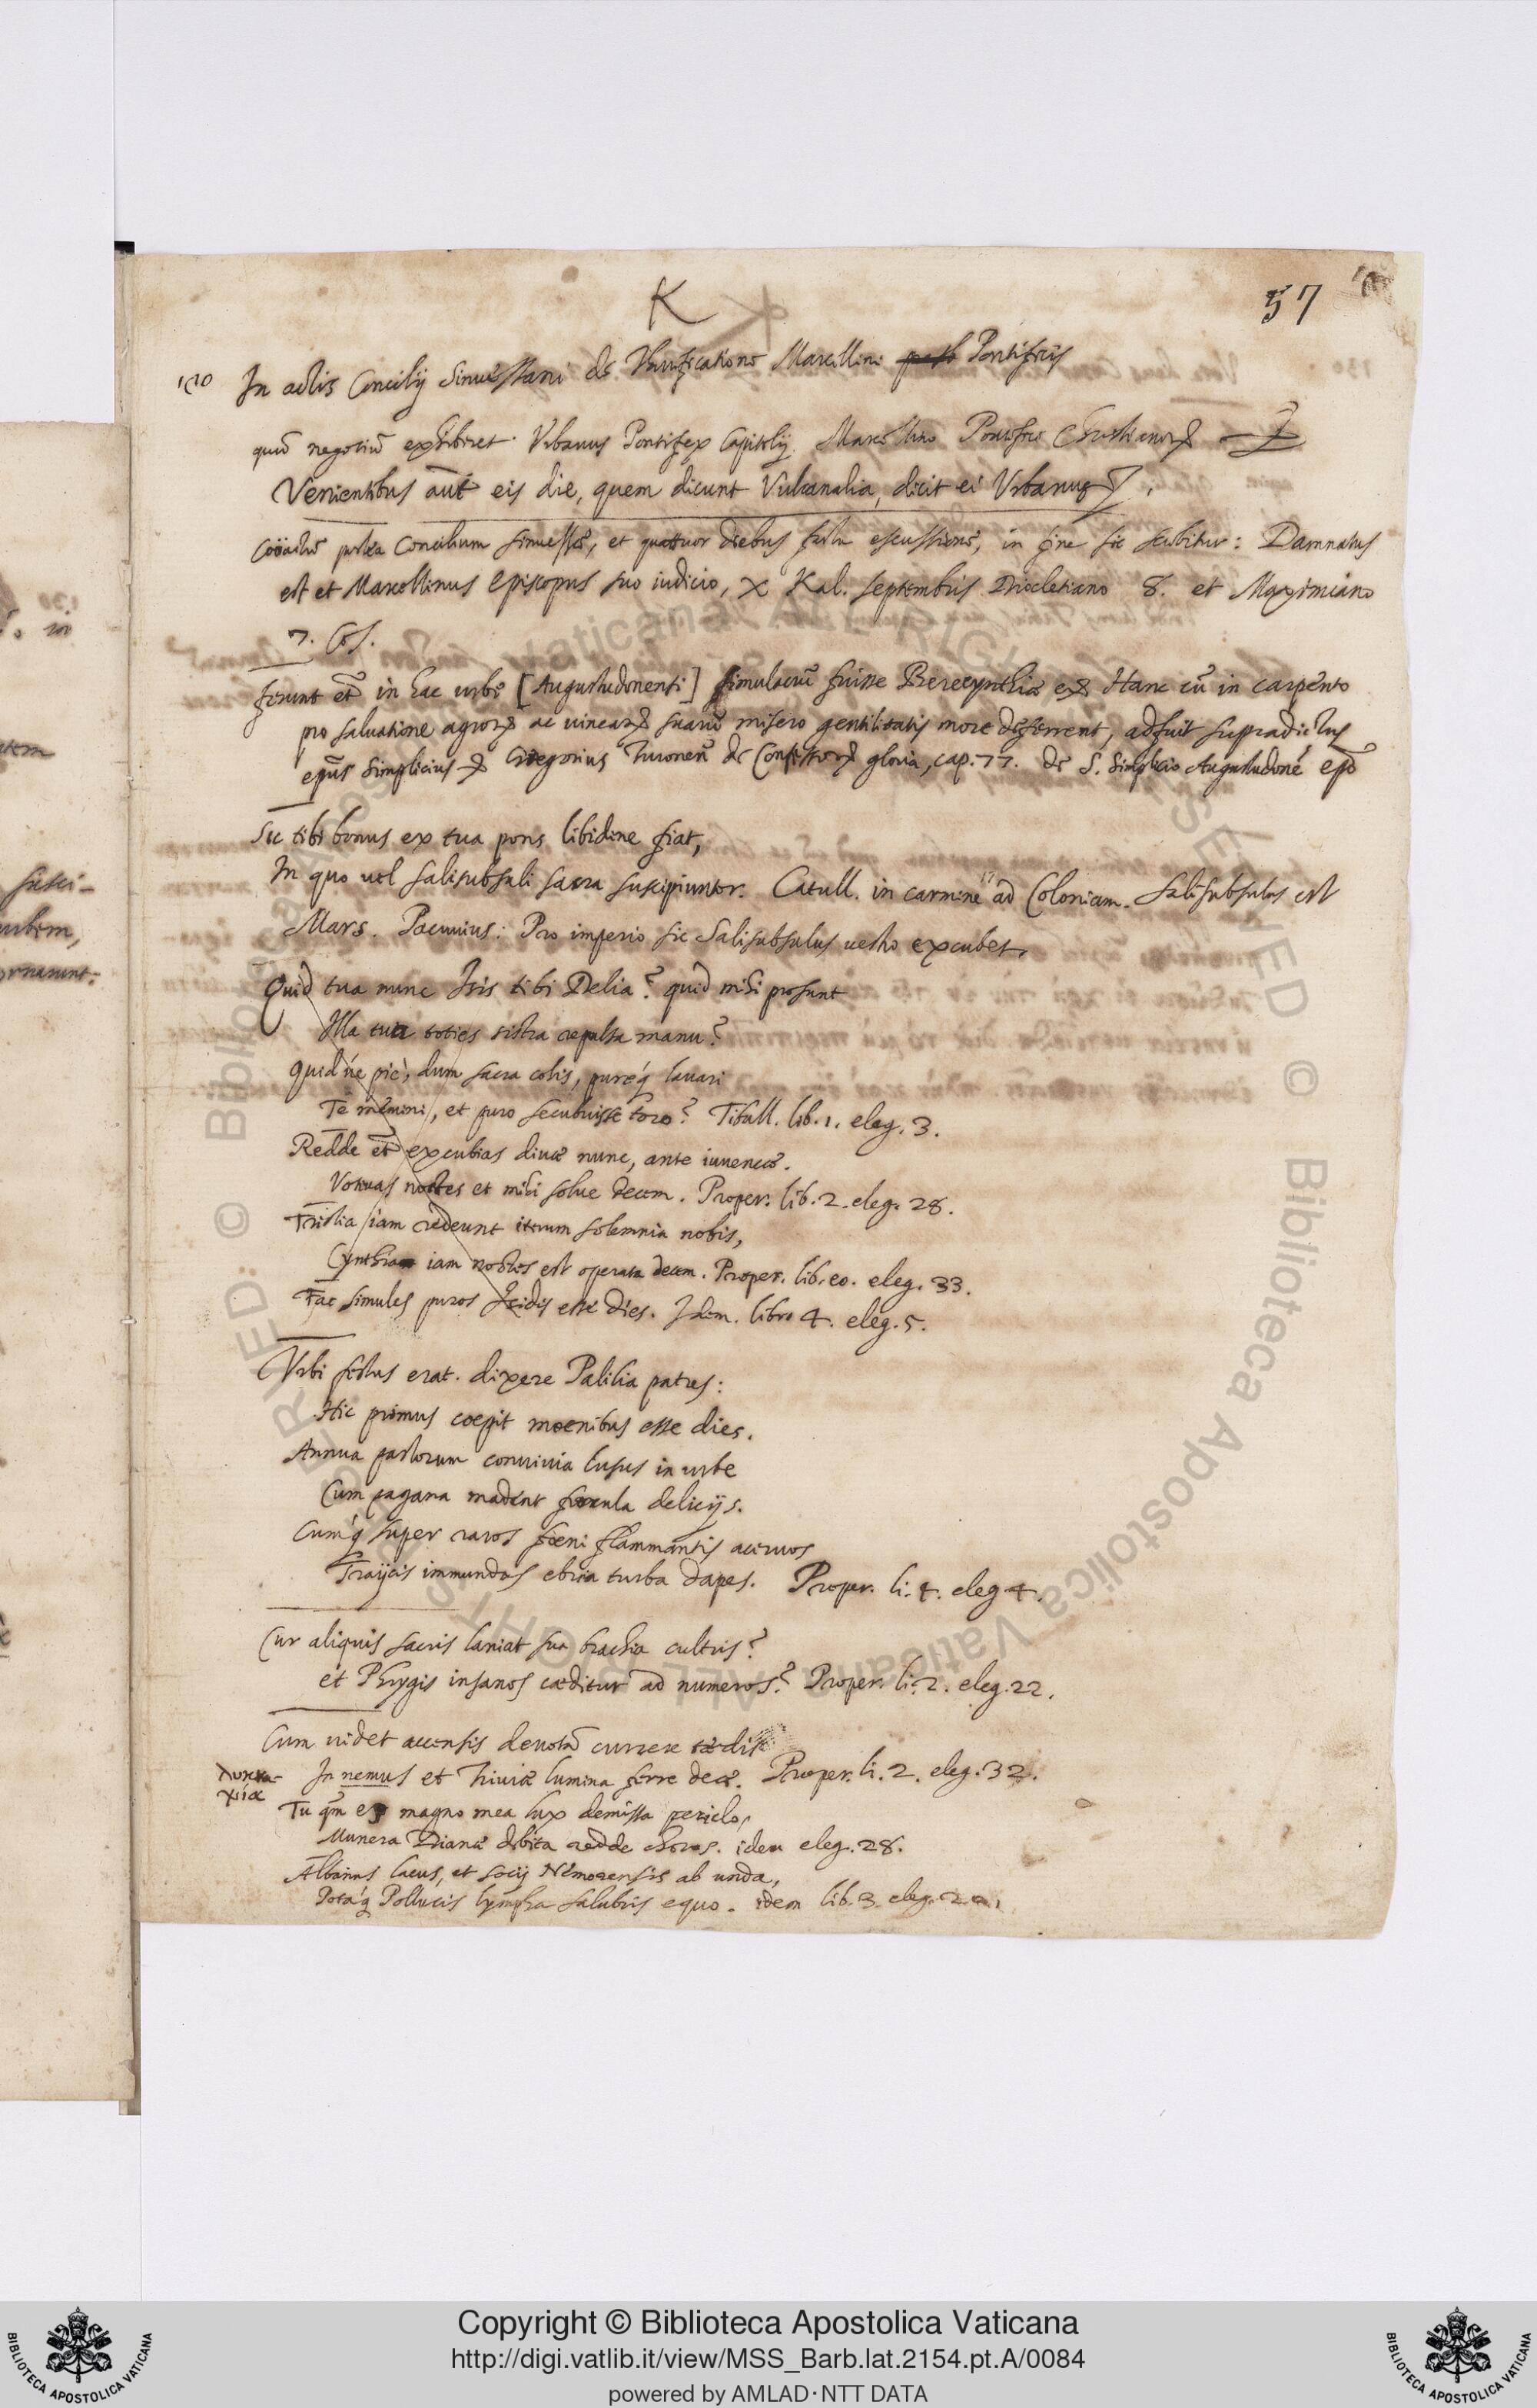 K
57
In actis Concilij Sinuessani de Thurificatione Marcellini Pontificis
quũ negotiũ exhiberet Vrbanus Pontifex Capitolij Marcellino Pontifici Christianorꝝ
Venientibus aũt eis die, quem dicunt Vulcanalia, dicit ei Vrbanus
postea Concilium Sinuessæ, et quattuor diebus, in fine sic scribitur: Damnatus
est et Marcellinus Episcopus suo iudicio, X Kal. Septembris Diocletiano 8. et Maximiano
7. Cos.
Ferunt etã in hac urbe [Augustudonensi] simulacrũ fuisse Berecynthiæ Hanc cũ in carpento
pro saluatione agrorꝝ ac uinearꝝ suarũ misero gentilitatis more deferrent, adfuit supradictus
ep̃us Simplicius Gregorius Turonen̄ de Confessorꝝ gloria, cap. 77. de S. Simplicio Augustudonẽ ep̃o
Sic tibi bonus ex tua pons libidine fiat,
In quo uel salisubsali sacra suscipiuntor. Catull. in carmine 17 ad Coloniam. Salisubsulus est
Mars. Pacuuius: Pro imperio sic Salisubsulus uestro excubet,
Quid tua nunc Isis tibi Delia? quid mihi prosunt
Illa tua toties sistra repulsa manu?
Quid ue piè, dum sacra colis, pureq́ lauari
Te memini, et puro secubuisse toro? Tibull. lib. 1. eleg. 3.
Redde etã excubias diuæ nunc, ante iuuencæ.
Votiuas noctes et mihi solue decem. Proper. lib. 2. eleg. 28.
Tristia iam redeunt iterum solemnia nobis,
Cynthia iam noctes est operata decem. Proper. lib. eo. eleg. 33.
Fac simules puros Isidis esse dies. Idem. libro 4. eleg. 5.
Vrbi festus erat. dixere Palilia patres:
Hic primus coepit moenibus esse dies.
Annua pastorum conuiuia lusus in urbe
Cum pagana madent fercula delicijs.
Cumq́ super raros foeni flammantis aceruos
Traijcit immundas ebria turba dapes. Proper. li. 4. eleg. 4.
Cur aliquis sacris laniat sua brachia cultris?
et Phrygis insanos cæditur ad numeros? Proper. li. 2. eleg. 22.
Cum uidet accensis deuotã currere tædis
In nemus et Triuiæ lumina ferre deæ. Proper. li. 2. eleg. 32.
Tu qm̃ es magno mea lux demissa periclo,
Munera Dianæ debita redde choros. idem eleg. 28.
Albanus lacus, et socij Nemorensis ab unda,
Potaq́ Pollucis lympha salubris equo. idem lib. 3. eleg.
Copyright © Biblioteca Apostolica Vaticana
http://digi.vatlib.it/view/MSS_Barb.lat.2154.pt.A/0084
powered by AMLAD·NTT DATA